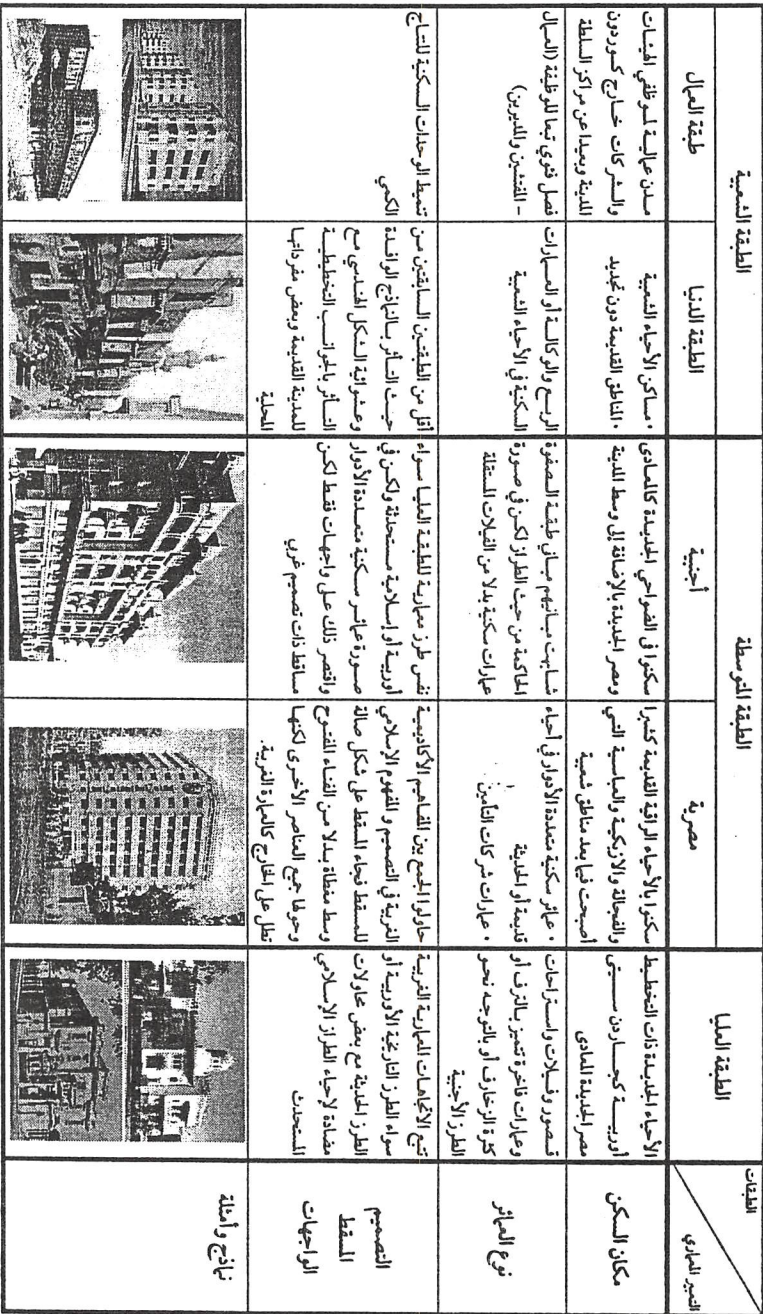 الطبقات
التعبير المعماري
الطبقة العليا
الطبقة المتوسطة
الطبقة الشعبية
مصرية
أجنبية
الطبقة الدنيا
طبقة العمال
مكان السكن
الأحياء الجديدة ذات التخطيط
أوربية كجاردن سيتى
مصر الجديدة المعادى
سكنوا بالأحياء الراقية القديمة كشبرا
والفجالة والازبكية والعباسية التي
أصبحت فيما بعد مناطق شعبية
سكنوا في الضواحي الجديدة كالمعادى
ومصر الجديدة بالإضافة إلى وسط المدينة
• مساكن الأحياء الشعبية
• المناطق القديمة دون تجديد
مدن عمالية لموظفي الهيئات
والشركات خارج كوردون
المدينة وبعيدا عن مراكز السلطة
نوع العمائر
قصور وفيلات واستراحات
وعمارات فاخرة تتميز بالترف أو
كثرة الزخارف أو بالتوجه نحو
الطرز الأجنبية
• عمائر سكنية متعددة الأدوار في أحياء
قديمة أو الحديثة
• عمارات شركات التأمين
شابهت مبانيهم مباني طبقة الصفوة
الحاكمة من حيث الطراز لكن في صورة
عمارات سكنية بدلا من الفيلات المستقلة
الربع والوكالة أو العمارات
السكنية في الأحياء الشعبية
فصل فئوي تبعا للوظيفة (العمال
– المفتشين والمديرين)
التصميم
المسقط
الواجهات
تتبع الاتجاهات المعمارية الغربية
سواء الطرز التاريخية الأوربية أو
الطرز الحديثة مع بعض محاولات
مضادة لإحياء الطراز الإسلامي
المستحدث
حاولوا الجمع بين المفاهيم الأكاديمية
الغربية في التصميم و المفهوم الإسلامي
للمسقط فجاء المسقط على شكل صالة
وسط مغطاة بدلا من الفناء المفتوح
وحولها جميع العناصر الأخرى لكنها
تطل على الخارج كالعمارة الغربية.
نفس طرز معمارية للطبقة العليا سواء
أوربية أو إسلامية مستحدثة ولكن في
صورة عمائر سكنية متعددة الأدوار
واقتصر ذلك على واجهات فقط لكن
مساقط ذات تصميم غربي
أقل من الطبقتين السابقتين من
حيث التأثر بالنماذج الوافدة
وعشوائية الشكل الهندسي مع
التأثر بالجوانب التخطيطية
للمدينة القديمة وبعض مفرداتها
المحلية
تنميط الوحدات السكنية للنتاج
الكمي
نماذج وأمثلة